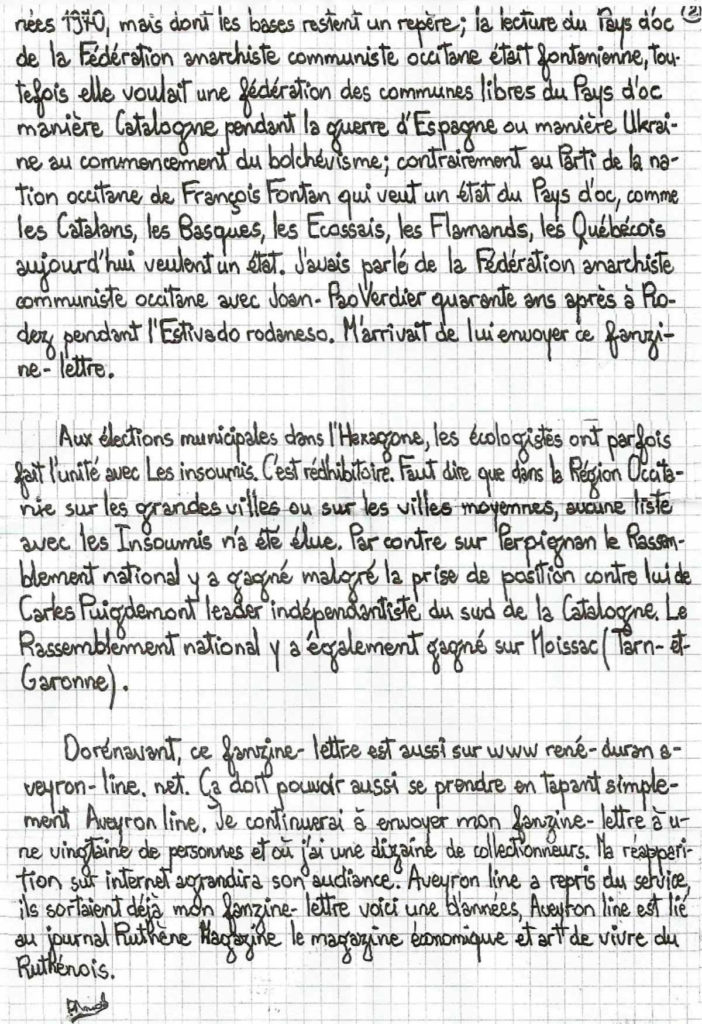 (2)
nées 1970, mais dont les bases restent un repère; la lecture du Pays d'oc
de la Fédération anarchiste communiste occitane était fontanienne, tou-
tefois elle voulait une fédération des communes libres du Pays d'oc
manière Catalogne pendant la guerre d'Espagne ou manière Ukrai-
ne au commencement du bolchévisme; contrairement au Parti de la na-
tion occitane de François Fontan qui veut un état du Pays d'oc, comme
les Catalans, les Basques, les Ecossais, les Flamands, les Québécois
aujourd'hui veulent un état. J'avais parlé de la Fédération anarchiste
communiste occitane avec Joan-Pao Verdier quarante ans après à Ro-
dez pendant l'Estivado rodaneso. M'arrivait de lui envoyer ce fanzi-
ne-lettre.
Aux élections municipales dans l'Hexagone, les écologistes ont parfois
fait l'unité avec Les insoumis. C'est rédhibitoire. Faut dire que dans la Région Occita-
nie sur les grandes villes ou sur les villes moyennes, aucune liste
avec les Insoumis n'a été élue. Par contre sur Perpignan le Rassem-
blement national y a gagné malgré la prise de position contre lui de
Carles Puigdemont leader indépendantiste du sud de la Catalogne. Le
Rassemblement national y a également gagné sur Moissac (Tarn-et-
Garonne).
Dorénavant, ce fanzine-lettre est aussi sur www rené-duran a-
veyron-line. net. Ça doit pouvoir aussi se prendre en tapant simple-
ment Aveyron line. Je continuerai à envoyer mon fanzine-lettre à u-
ne vingtaine de personnes et où j'ai une dizaine de collectionneurs. Ma réappari-
tion sur internet agrandira son audiance. Aveyron line a repris du service,
ils sortaient déjà mon fanzine-lettre voici une d'années, Aveyron line est lié
au journal Ruthène Magazine le magazine économique et art de vivre du
Ruthénois.